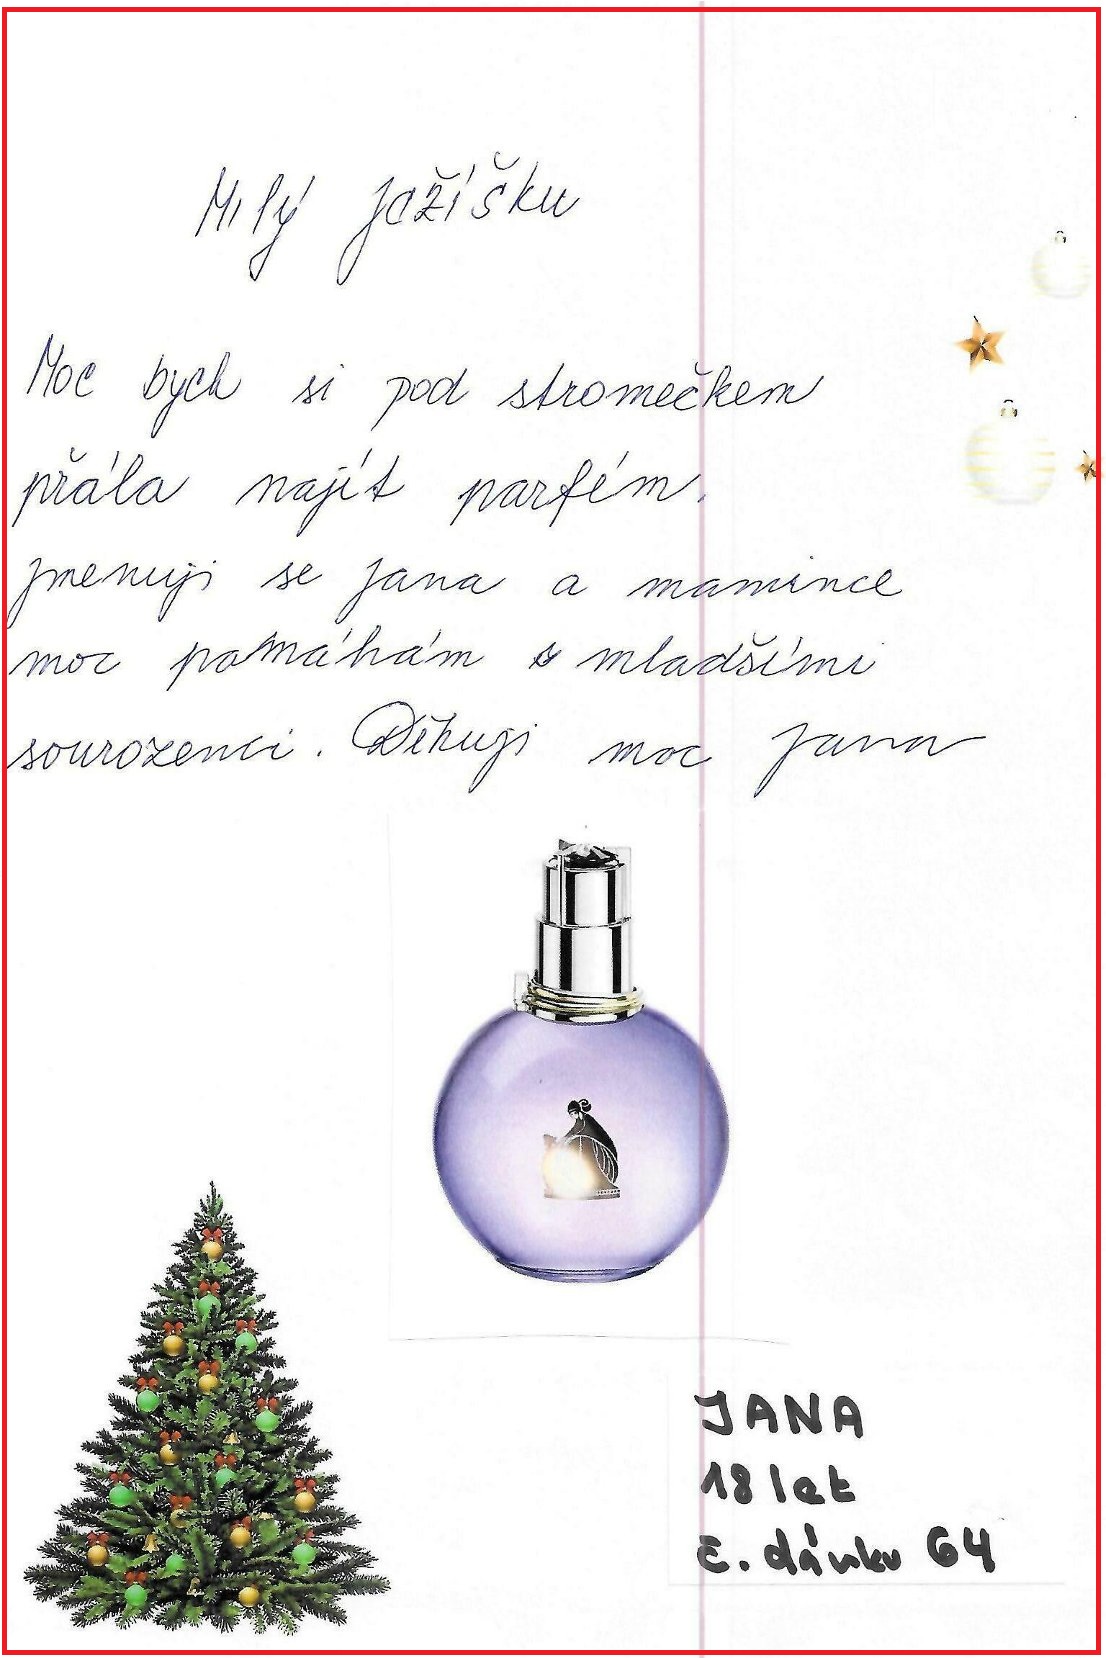 Milý ježíšku
Moc bych si pod stromečkem
přála najít parfém.
jmenuji se jana a mamince
moc pomáhám s mladšími
sourozenci. Děkuji moc Jana
JANA
18 let
č. dárku 64